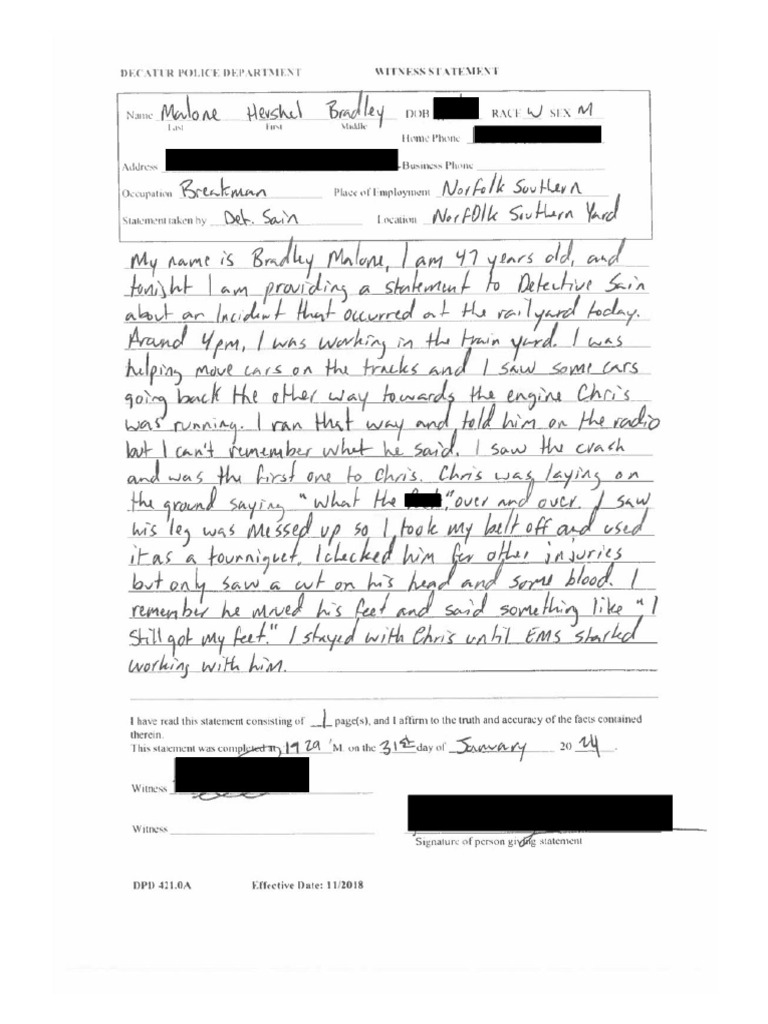 DECATUR POLICE DEPARTMENT WITNESS STATEMENT
Name Malone Hershel Bradley DOB RACE W SEX M
Last First Middle
Home Phone
Address Business Phone
Occupation Breakman Place of Employment Norfolk Southern
Statement taken by Det. Sain Location Norfolk Southern Yard
My name is Bradley Malone, I am 47 years old, and
tonight I am providing a statement to Detective Sain
about an Incident that occurred at the railyard today.
Around 4pm, I was working in the train yard. I was
helping move cars on the tracks and I saw some cars
going back the other way towards the engine Chris
was running. I ran that way and told him on the radio
but I can't remember what he said. I saw the crash
and was the first one to Chris. Chris was laying on
the ground saying "What the ", over and over. I saw
his leg was messed up so I took my belt off and used
it as a tourniquet. I checked him for other injuries
but only saw a cut on his head and some blood. I
remember he moved his feet and said something like "I
still got my feet." I stayed with Chris until EMS started
working with him.
I have read this statement consisting of 1 page(s), and I affirm to the truth and accuracy of the facts contained
therein.
This statement was completed at 1929 'M. on the 31st day of January 20 24.
Witness
Witness
Signature of person giving statement
DPD 421.0A Effective Date: 11/2018